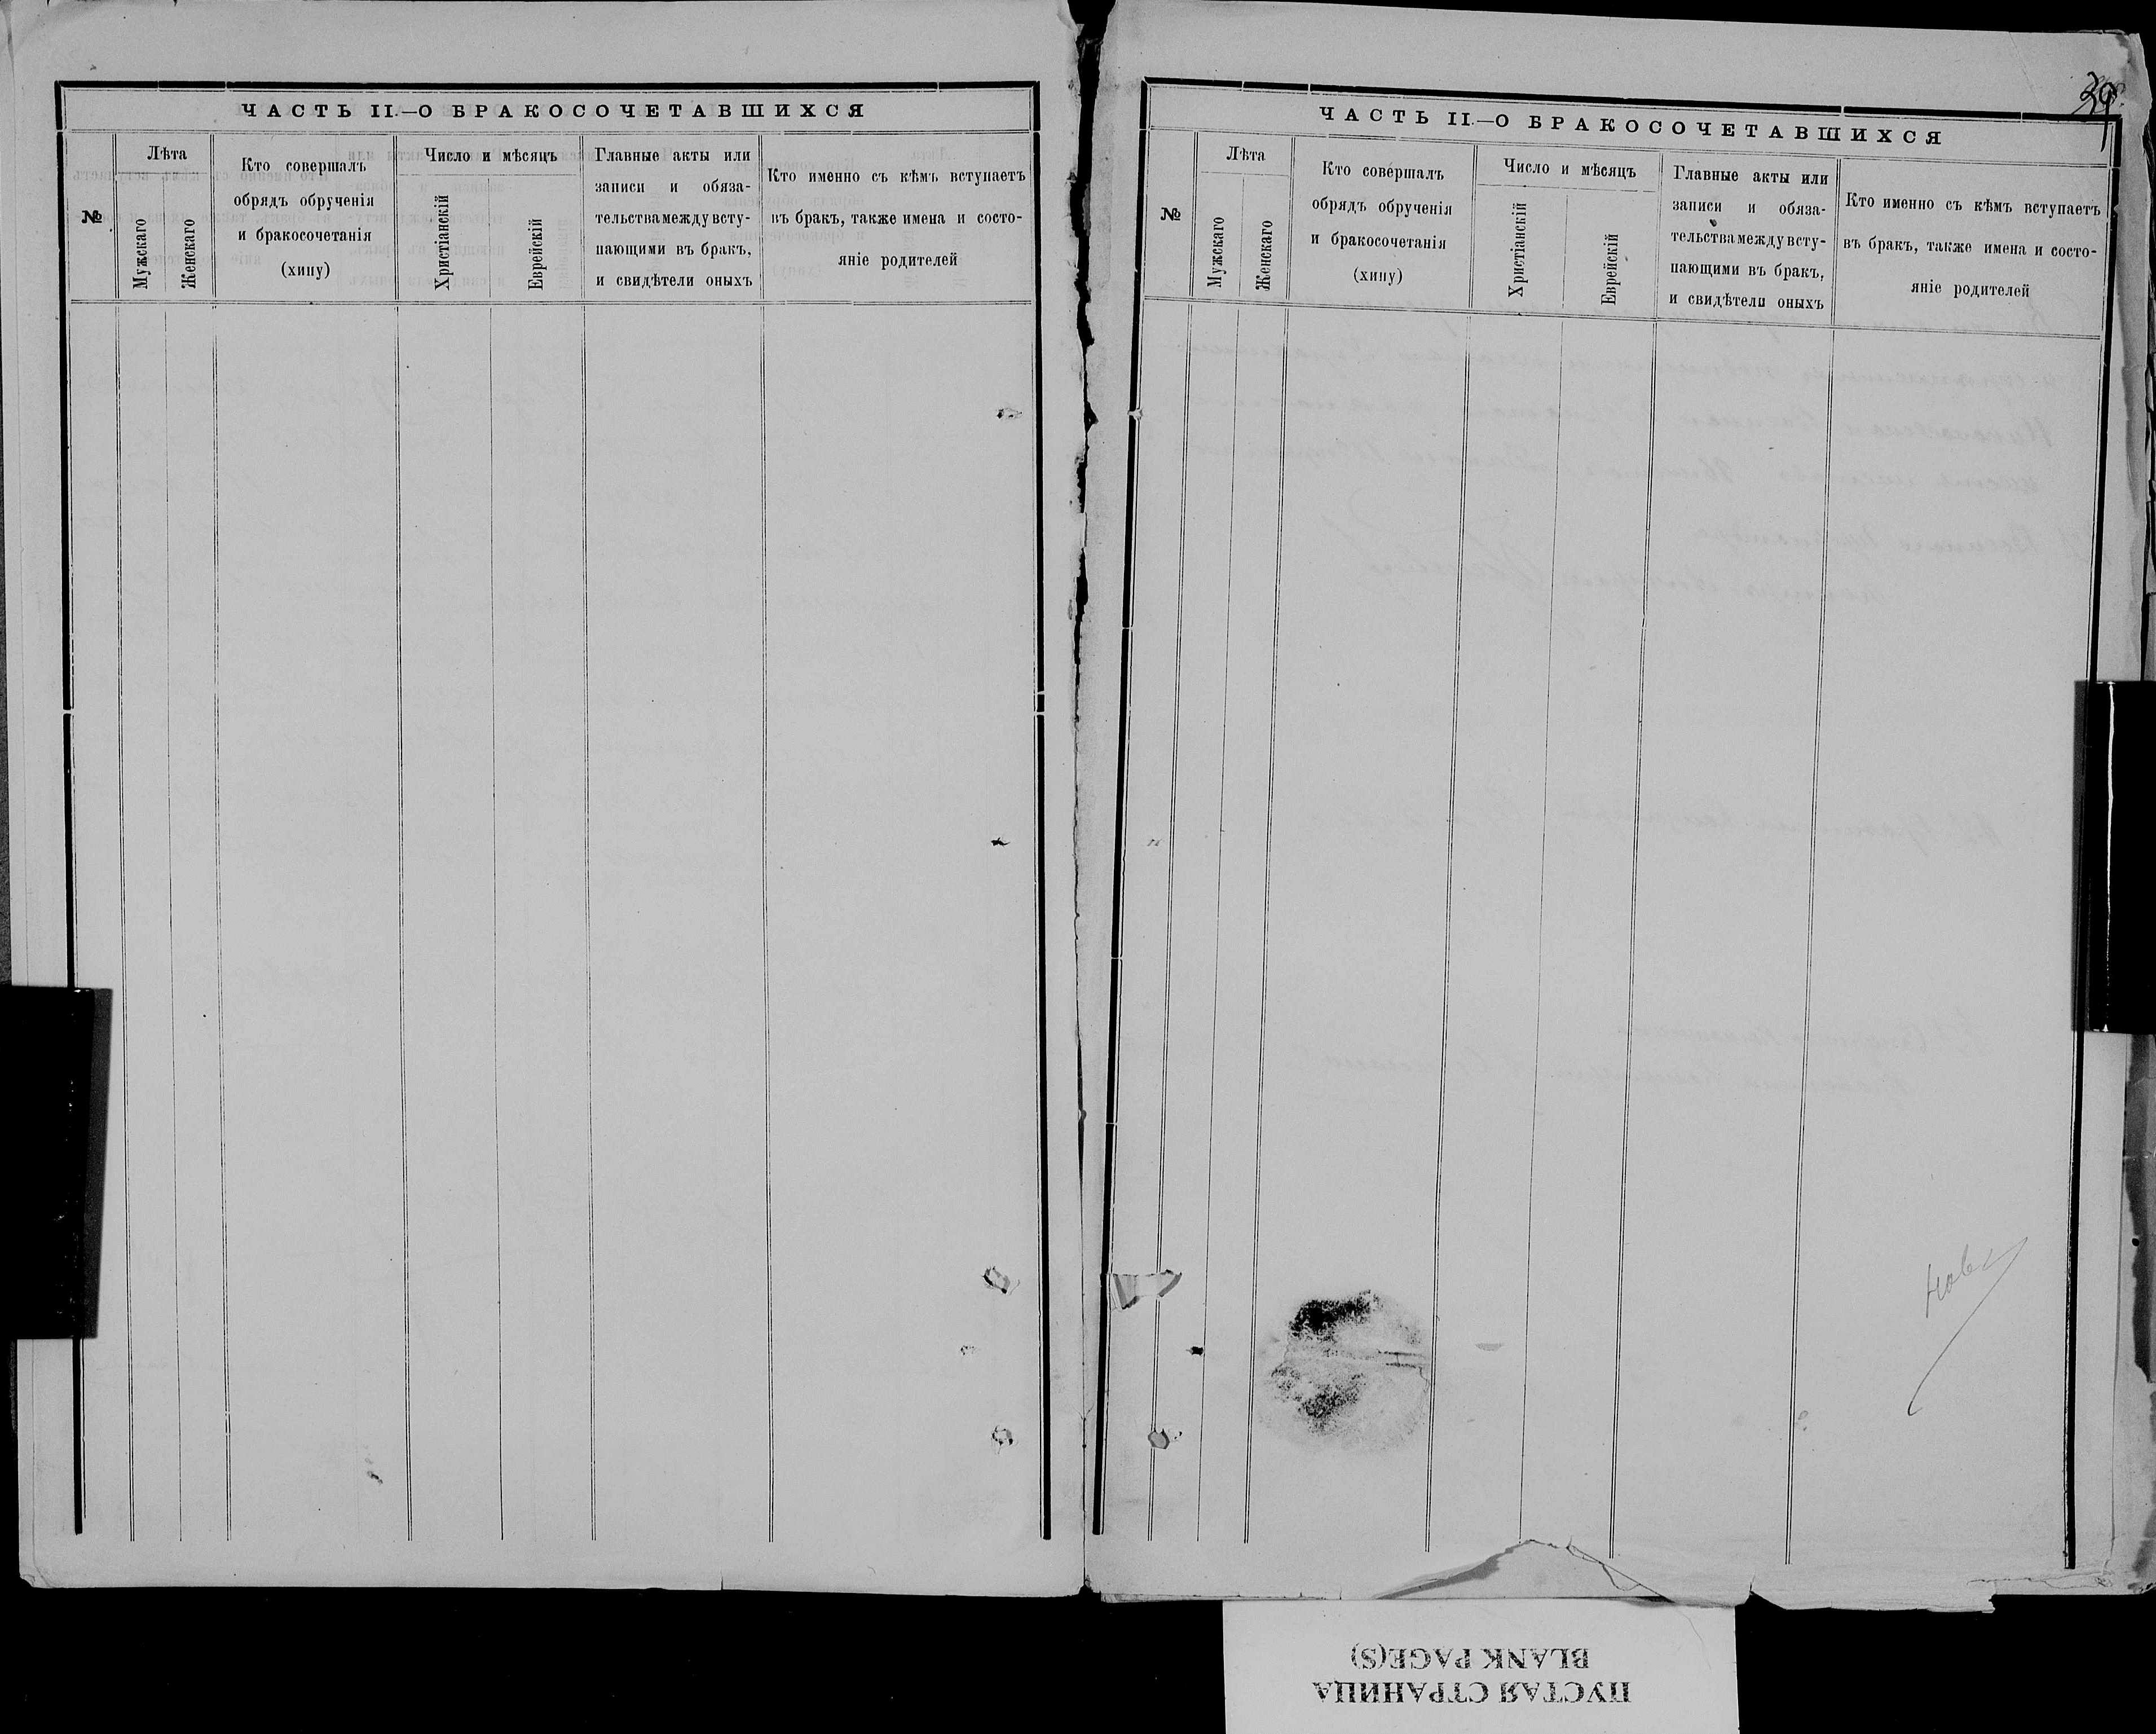 ЧАСТЬ II.—О БРАКОСОЧЕТАВШИХСЯ
№
Лѣта
Мужскаго
Женскаго
Кто совершалъ
обрядъ обрученія
и бракосочетанія
(хупу)
Число и мѣсяцъ
Христіанскій
Еврейскій
Главные акты или
записи и обяза-
тельства между всту-
пающими въ бракъ,
и свидѣтели оныхъ
Кто именно съ кѣмъ вступаетъ
въ бракъ, также имена и состо-
яніе родителей
39
ЧАСТЬ II.—О БРАКОСОЧЕТАВШИХСЯ
№
Лѣта
Мужскаго
Женскаго
Кто совершалъ
обрядъ обрученія
и бракосочетанія
(хупу)
Число и мѣсяцъ
Христіанскій
Еврейскій
Главные акты или
записи и обяза-
тельства между всту-
пающими въ бракъ,
и свидѣтели оныхъ
Кто именно съ кѣмъ вступаетъ
въ бракъ, также имена и состо-
яніе родителей
ПУСТАЯ СТРАНИЦА
BLANK PAGE(S)